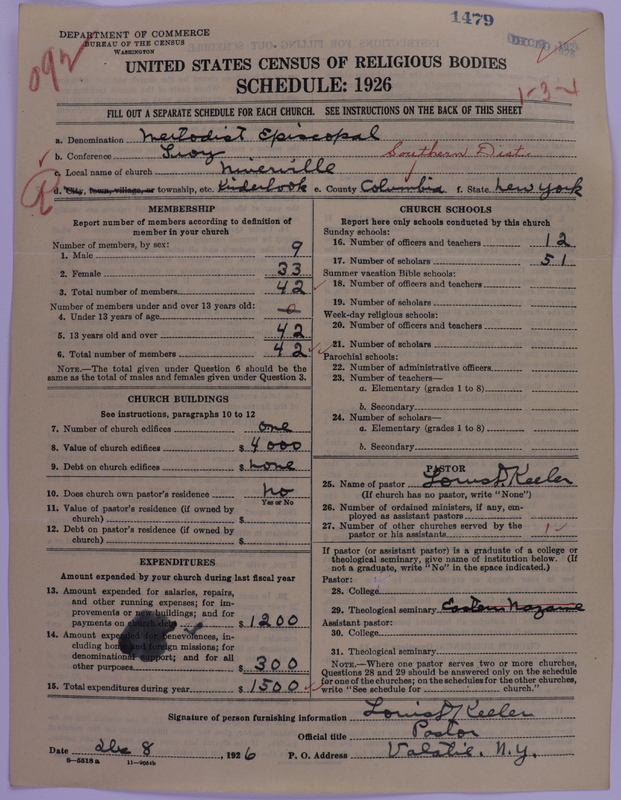 1479
DEPARTMENT OF COMMERCE
BUREAU OF THE CENSUS
WASHINGTON
092
UNITED STATES CENSUS OF RELIGIOUS BODIES
SCHEDULE: 1926
1-3-1
FILL OUT A SEPARATE SCHEDULE FOR EACH CHURCH. SEE INSTRUCTIONS ON THE BACK OF THIS SHEET
a. Denomination Methodist Episcopal
b. Conference Troy Southern Dist.
c. Local name of church Niverville
d. City, town, village, or township, etc. Kinderhook e. County Columbia f. State New York
MEMBERSHIP
Report number of members according to definition of
member in your church
Number of members, by sex:
1. Male 9
2. Female 33
3. Total number of members 42
Number of members under and over 13 years old:
4. Under 13 years of age 0
5. 13 years old and over 42
6. Total number of members 42
NOTE.—The total given under Question 6 should be
same as the total of males and females given under Question 3.
CHURCH BUILDINGS
See instructions, paragraphs 10 to 12
7. Number of church edifices one
8. Value of church edifices $ 4000
9. Debt on church edifices $ none
10. Does church own pastor's residence No
Yes or No
11. Value of pastor's residence (if owned by
church) $
12. Debt on pastor's residence (if owned by
church) $
EXPENDITURES
Amount expended by your church during last fiscal year
13. Amount expended for salaries, repairs,
and other running expenses; for im-
provements or new buildings; and for
payments on church debt $ 1200
14. Amount expended for benevolences, in-
cluding home and foreign missions; for
denominational support; and for all
other purposes $ 300
15. Total expenditures during year $ 1500
CHURCH SCHOOLS
Report here only schools conducted by this church
Sunday schools:
16. Number of officers and teachers 12
17. Number of scholars 51
Summer vacation Bible schools:
18. Number of officers and teachers
19. Number of scholars
Week-day religious schools:
20. Number of officers and teachers
21. Number of scholars
Parochial schools:
22. Number of administrative officers
23. Number of teachers—
a. Elementary (grades 1 to 8)
b. Secondary
24. Number of scholars—
a. Elementary (grades 1 to 8)
b. Secondary
PASTOR
25. Name of pastor Louis D Keeler
(If church has no pastor, write "None")
26. Number of ordained ministers, if any, em-
ployed as assistant pastors
27. Number of other churches served by the
pastor or his assistants 1
If pastor (or assistant pastor) is a graduate of a college or
theological seminary, give name of institution below. (If
not a graduate, write "No" in the space indicated.)
Pastor:
28. College
29. Theological seminary Eastern Nazarene
Assistant pastor:
30. College
31. Theological seminary
NOTE.—Where one pastor serves two or more churches,
Questions 28 and 29 should be answered only on the schedule
for one of the churches; on the schedules for the other churches,
write "See schedule for church."
Signature of person furnishing information Louis D Keeler
Official title Pastor
Date Dec 8, 1926 P. O. Address Valatie, N.Y.
8-5518a 11-9054b